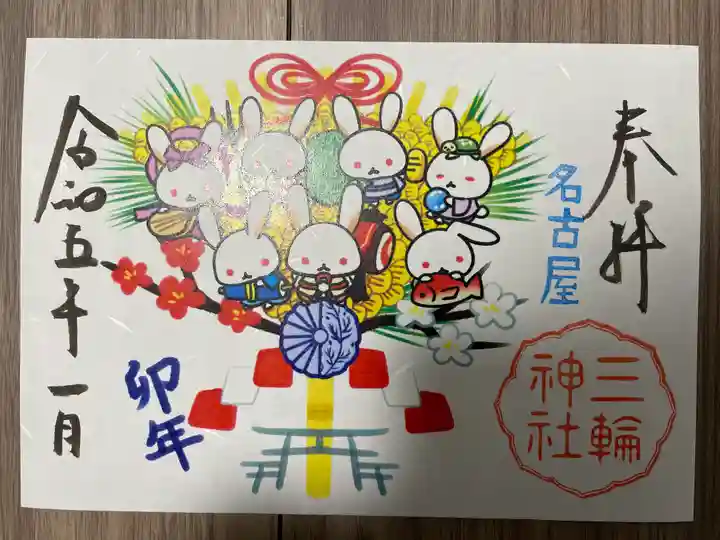 奉拝
名古屋
三輪
神社
卯年
令和五年一月